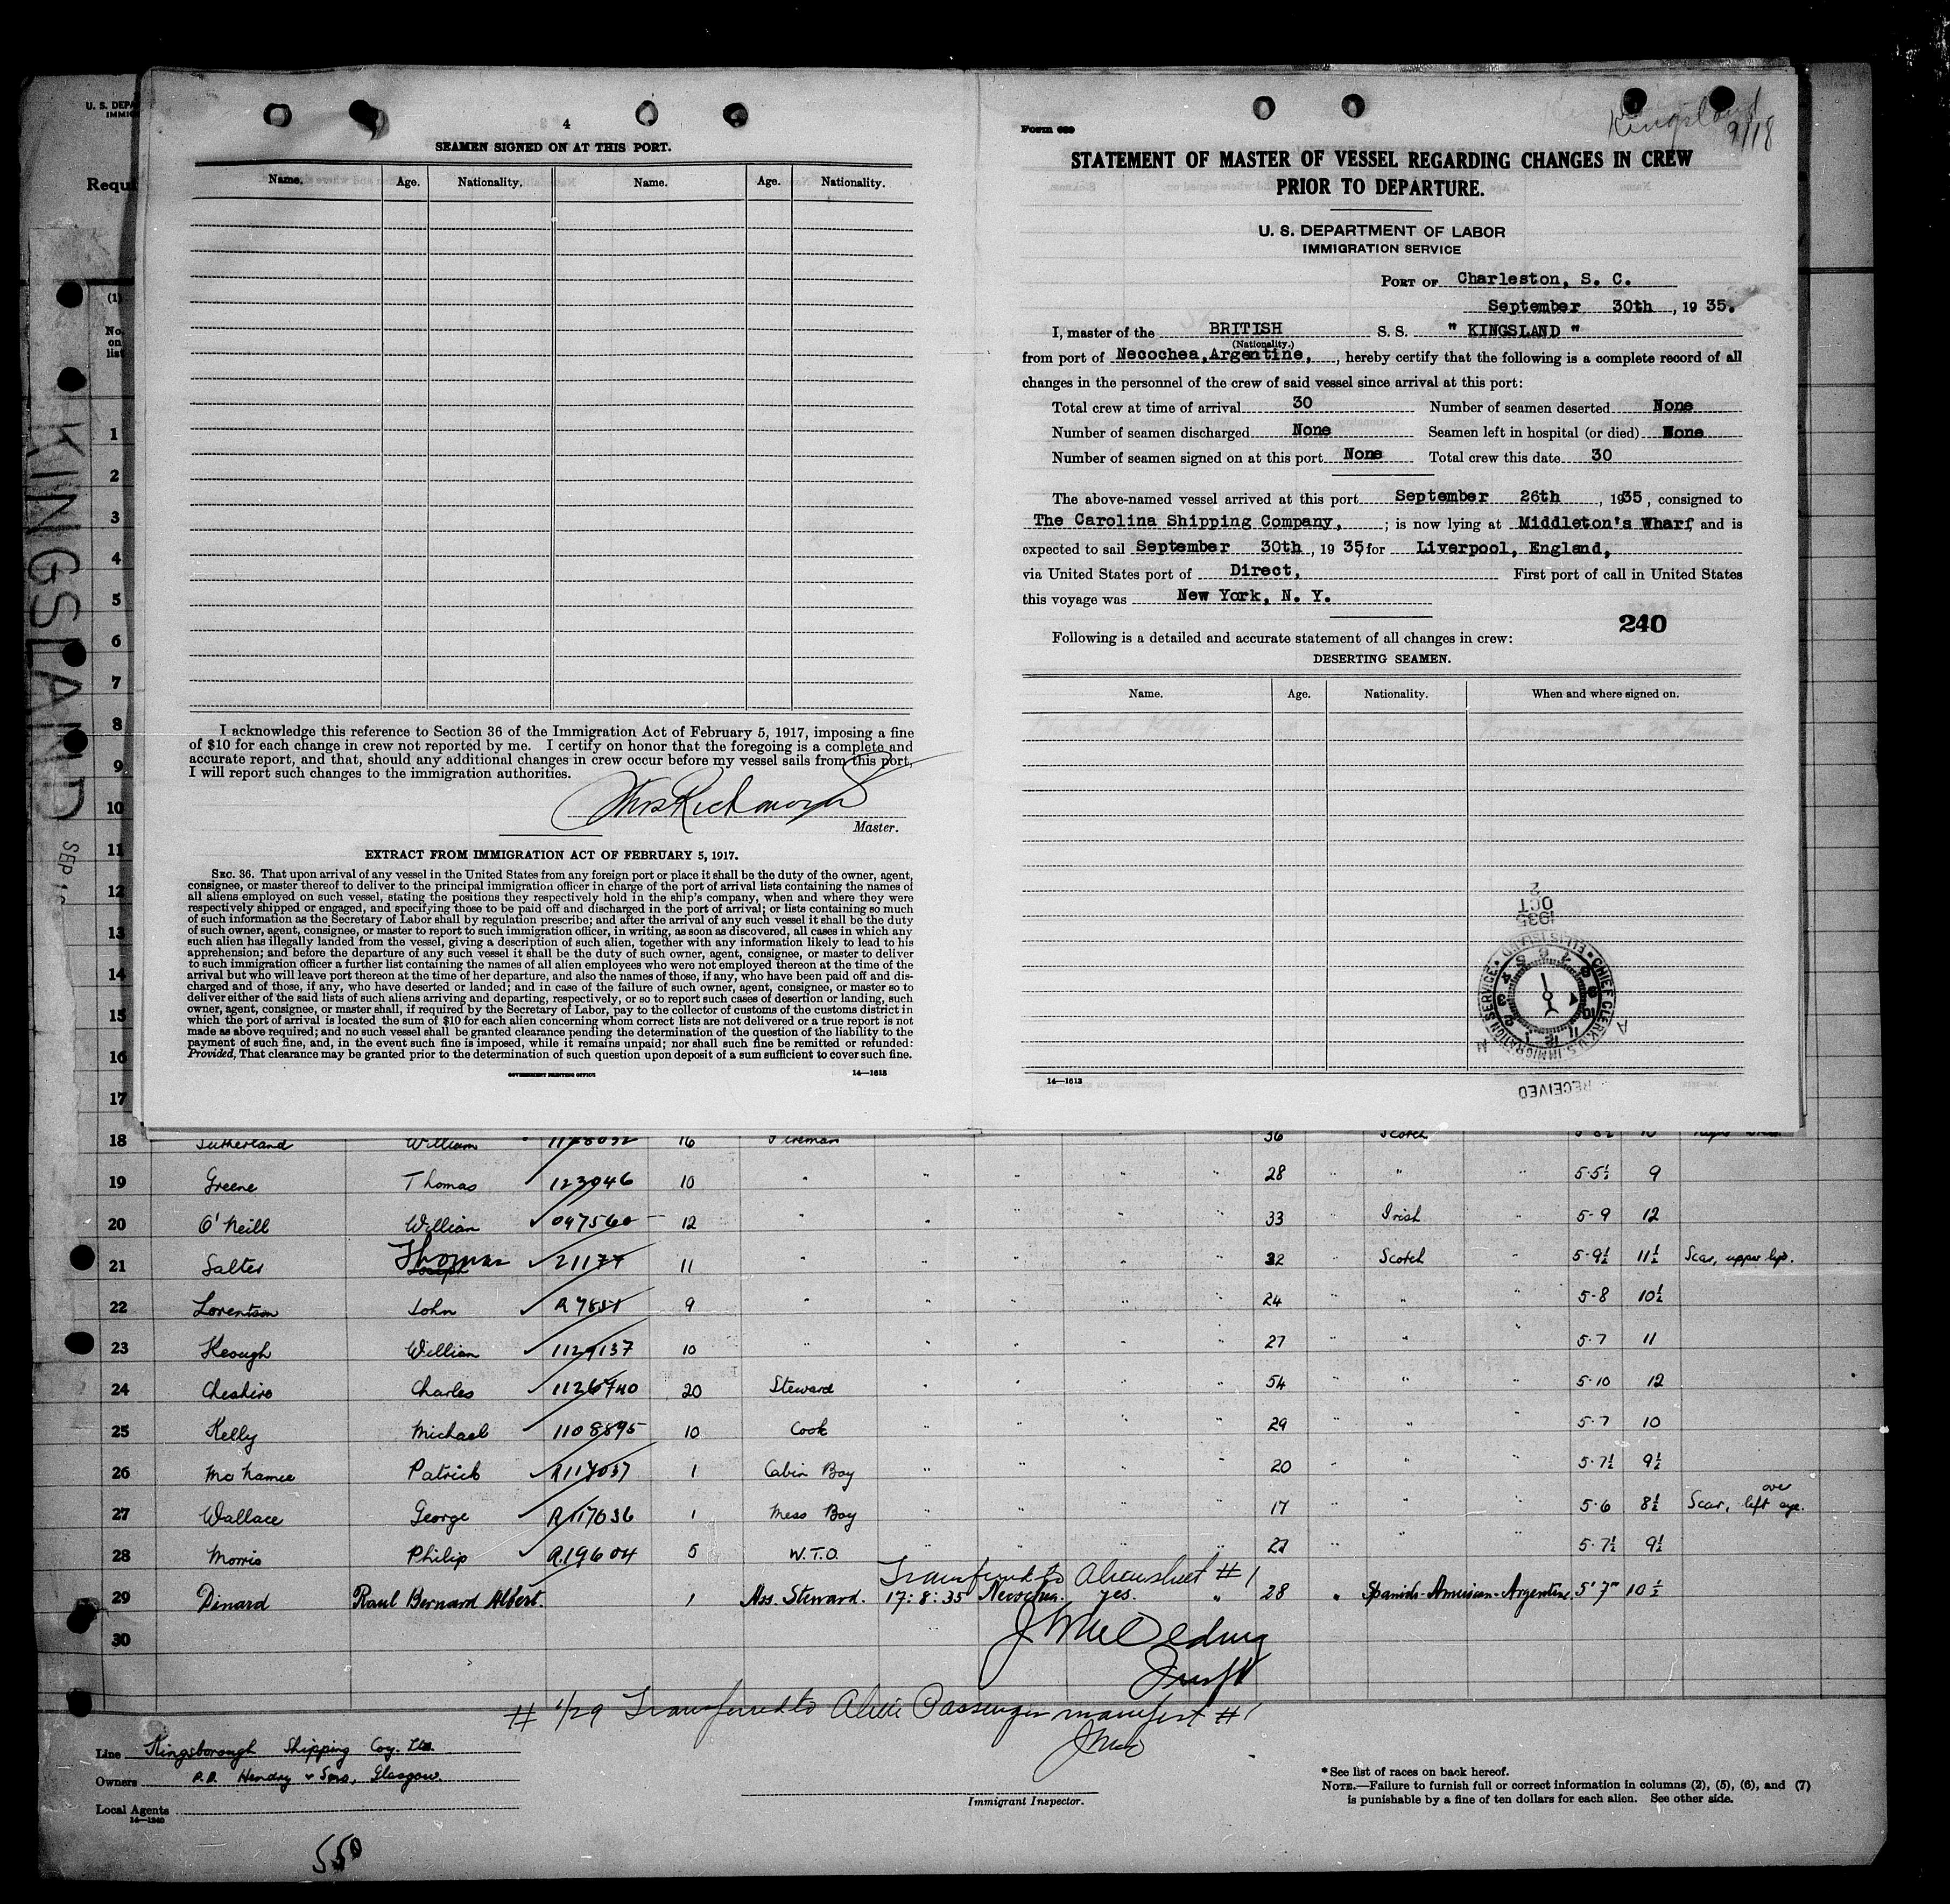 U. S. DEPA
IMMI
Requi
(1)
No.
on
list
KINGSLAND
SEP 1
4
SEAMEN SIGNED ON AT THIS PORT.
Name. Age. Nationality. Name. Age. Nationality.
I acknowledge this reference to Section 36 of the Immigration Act of February 5, 1917, imposing a fine
of $10 for each change in crew not reported by me. I certify on honor that the foregoing is a complete and
accurate report, and that, should any additional changes in crew occur before my vessel sails from this port,
I will report such changes to the immigration authorities.
Master.
EXTRACT FROM IMMIGRATION ACT OF FEBRUARY 5, 1917.
SEC. 36. That upon arrival of any vessel in the United States from any foreign port or place it shall be the duty of the owner, agent,
consignee, or master thereof to deliver to the principal immigration officer in charge of the port of arrival lists containing the names of
all aliens employed on such vessel, stating the positions they respectively hold in the ship's company, when and where they were
respectively shipped or engaged, and specifying those to be paid off and discharged in the port of arrival; or lists containing so much
of such information as the Secretary of Labor shall by regulation prescribe; and after the arrival of any such vessel it shall be the duty
of such owner, agent, consignee, or master to report to such immigration officer, in writing, as soon as discovered, all cases in which any
such alien has illegally landed from the vessel, giving a description of such alien, together with any information likely to lead to his
apprehension; and before the departure of any such vessel it shall be the duty of such owner, agent, consignee, or master to deliver
to such immigration officer a further list containing the names of all alien employees who were not employed thereon at the time of the
arrival but who will leave port thereon at the time of her departure, and also the names of those, if any, who have been paid off and dis-
charged and of those, if any, who have deserted or landed; and in case of the failure of such owner, agent, consignee, or master so to
deliver either of the said lists of such aliens arriving and departing, respectively, or so to report such cases of desertion or landing, such
owner, agent, consignee, or master shall, if required by the Secretary of Labor, pay to the collector of customs of the customs district in
which the port of arrival is located the sum of $10 for each alien concerning whom correct lists are not delivered or a true report is not
made as above required; and no such vessel shall be granted clearance pending the determination of the question of the liability to the
payment of such fine, and, in the event such fine is imposed, while it remains unpaid; nor shall such fine be remitted or refunded:
Provided, That clearance may be granted prior to the determination of such question upon deposit of a sum sufficient to cover such fine.
GOVERNMENT PRINTING OFFICE 14—1613
Kingsland
9/18
Form 689
STATEMENT OF MASTER OF VESSEL REGARDING CHANGES IN CREW
PRIOR TO DEPARTURE.
U. S. DEPARTMENT OF LABOR
IMMIGRATION SERVICE
PORT OF Charleston, S. C.
September 30th , 19 35.
I, master of the BRITISH S. S. " KINGSLAND "
(Nationality.)
from port of Necochea,Argentine, , hereby certify that the following is a complete record of all
changes in the personnel of the crew of said vessel since arrival at this port:
Total crew at time of arrival 30 Number of seamen deserted None
Number of seamen discharged None Seamen left in hospital (or died) None
Number of seamen signed on at this port None Total crew this date 30
The above-named vessel arrived at this port September 26th , 1935, consigned to
The Carolina Shipping Company, ; is now lying at Middleton's Wharf, and is
expected to sail September 30th , 19 35, for Liverpool, England,
via United States port of Direct, First port of call in United States
this voyage was New York, N. Y.
240
Following is a detailed and accurate statement of all changes in crew:
DESERTING SEAMEN.
Name. Age. Nationality. When and where signed on.
RECEIVED
CHIEF CLERK U. S. IMMIGRATION SERVICE • ELLIS ISLAND •
1935 OCT 2
14—1613
1
2
3
4
5
6
7
8
9
10
11
12
13
14
15
16
17
18 Sutherland William 16 Fireman 36 Scotch
19 Greene Thomas 123946 10 " " " " " 28 " " 5-5½ 9
20 O'Neill William 047560 12 " 33 " Irish " 5-9 12
21 Salter Thomas Joseph 21177 11 " " " " 32 " Scotch " 5-9½ 11½ Scar, upper lip.
22 Lorentson John R 7851 9 " " " " " 24 " " " 5-8 10½
23 Keough William 1129137 10 " " " " " 27 " " " 5-7 11
24 Cheshire Charles 1126740 20 Steward " " " " 54 " " " 5-10 12
25 Kelly Michael 1108895 10 Cook " " " " 29 " " " 5-7 10
26 McNamee Patrick R117037 1 Cabin Boy " " " " 20 " " " 5-7½ 9½
27 Wallace George R117036 1 Mess Boy " " " " 17 " " " 5-6 8½ Scar, over left eye.
28 Morris Philip R.19604 5 W.T.O. " " " " 27 " " " 5-7½ 9½
Transferred to Alien sheet # 1
29 Dinard Raul Bernard Albert. 1 Ass. Steward. 17:8:35 Necochea. yes. " 28 " Spanish-American-Argentine. 5'7" 10½
30
# 1/29 Transferred to Alien Passenger manifest # 1
Line Kingsborough Shipping Coy. Ltd.
Owners P.D. Hendry & Sons, Glasgow.
Local Agents
14—1240
Immigrant Inspector.
* See list of races on back hereof.
NOTE.—Failure to furnish full or correct information in columns (2), (5), (6), and (7)
is punishable by a fine of ten dollars for each alien. See other side.
550